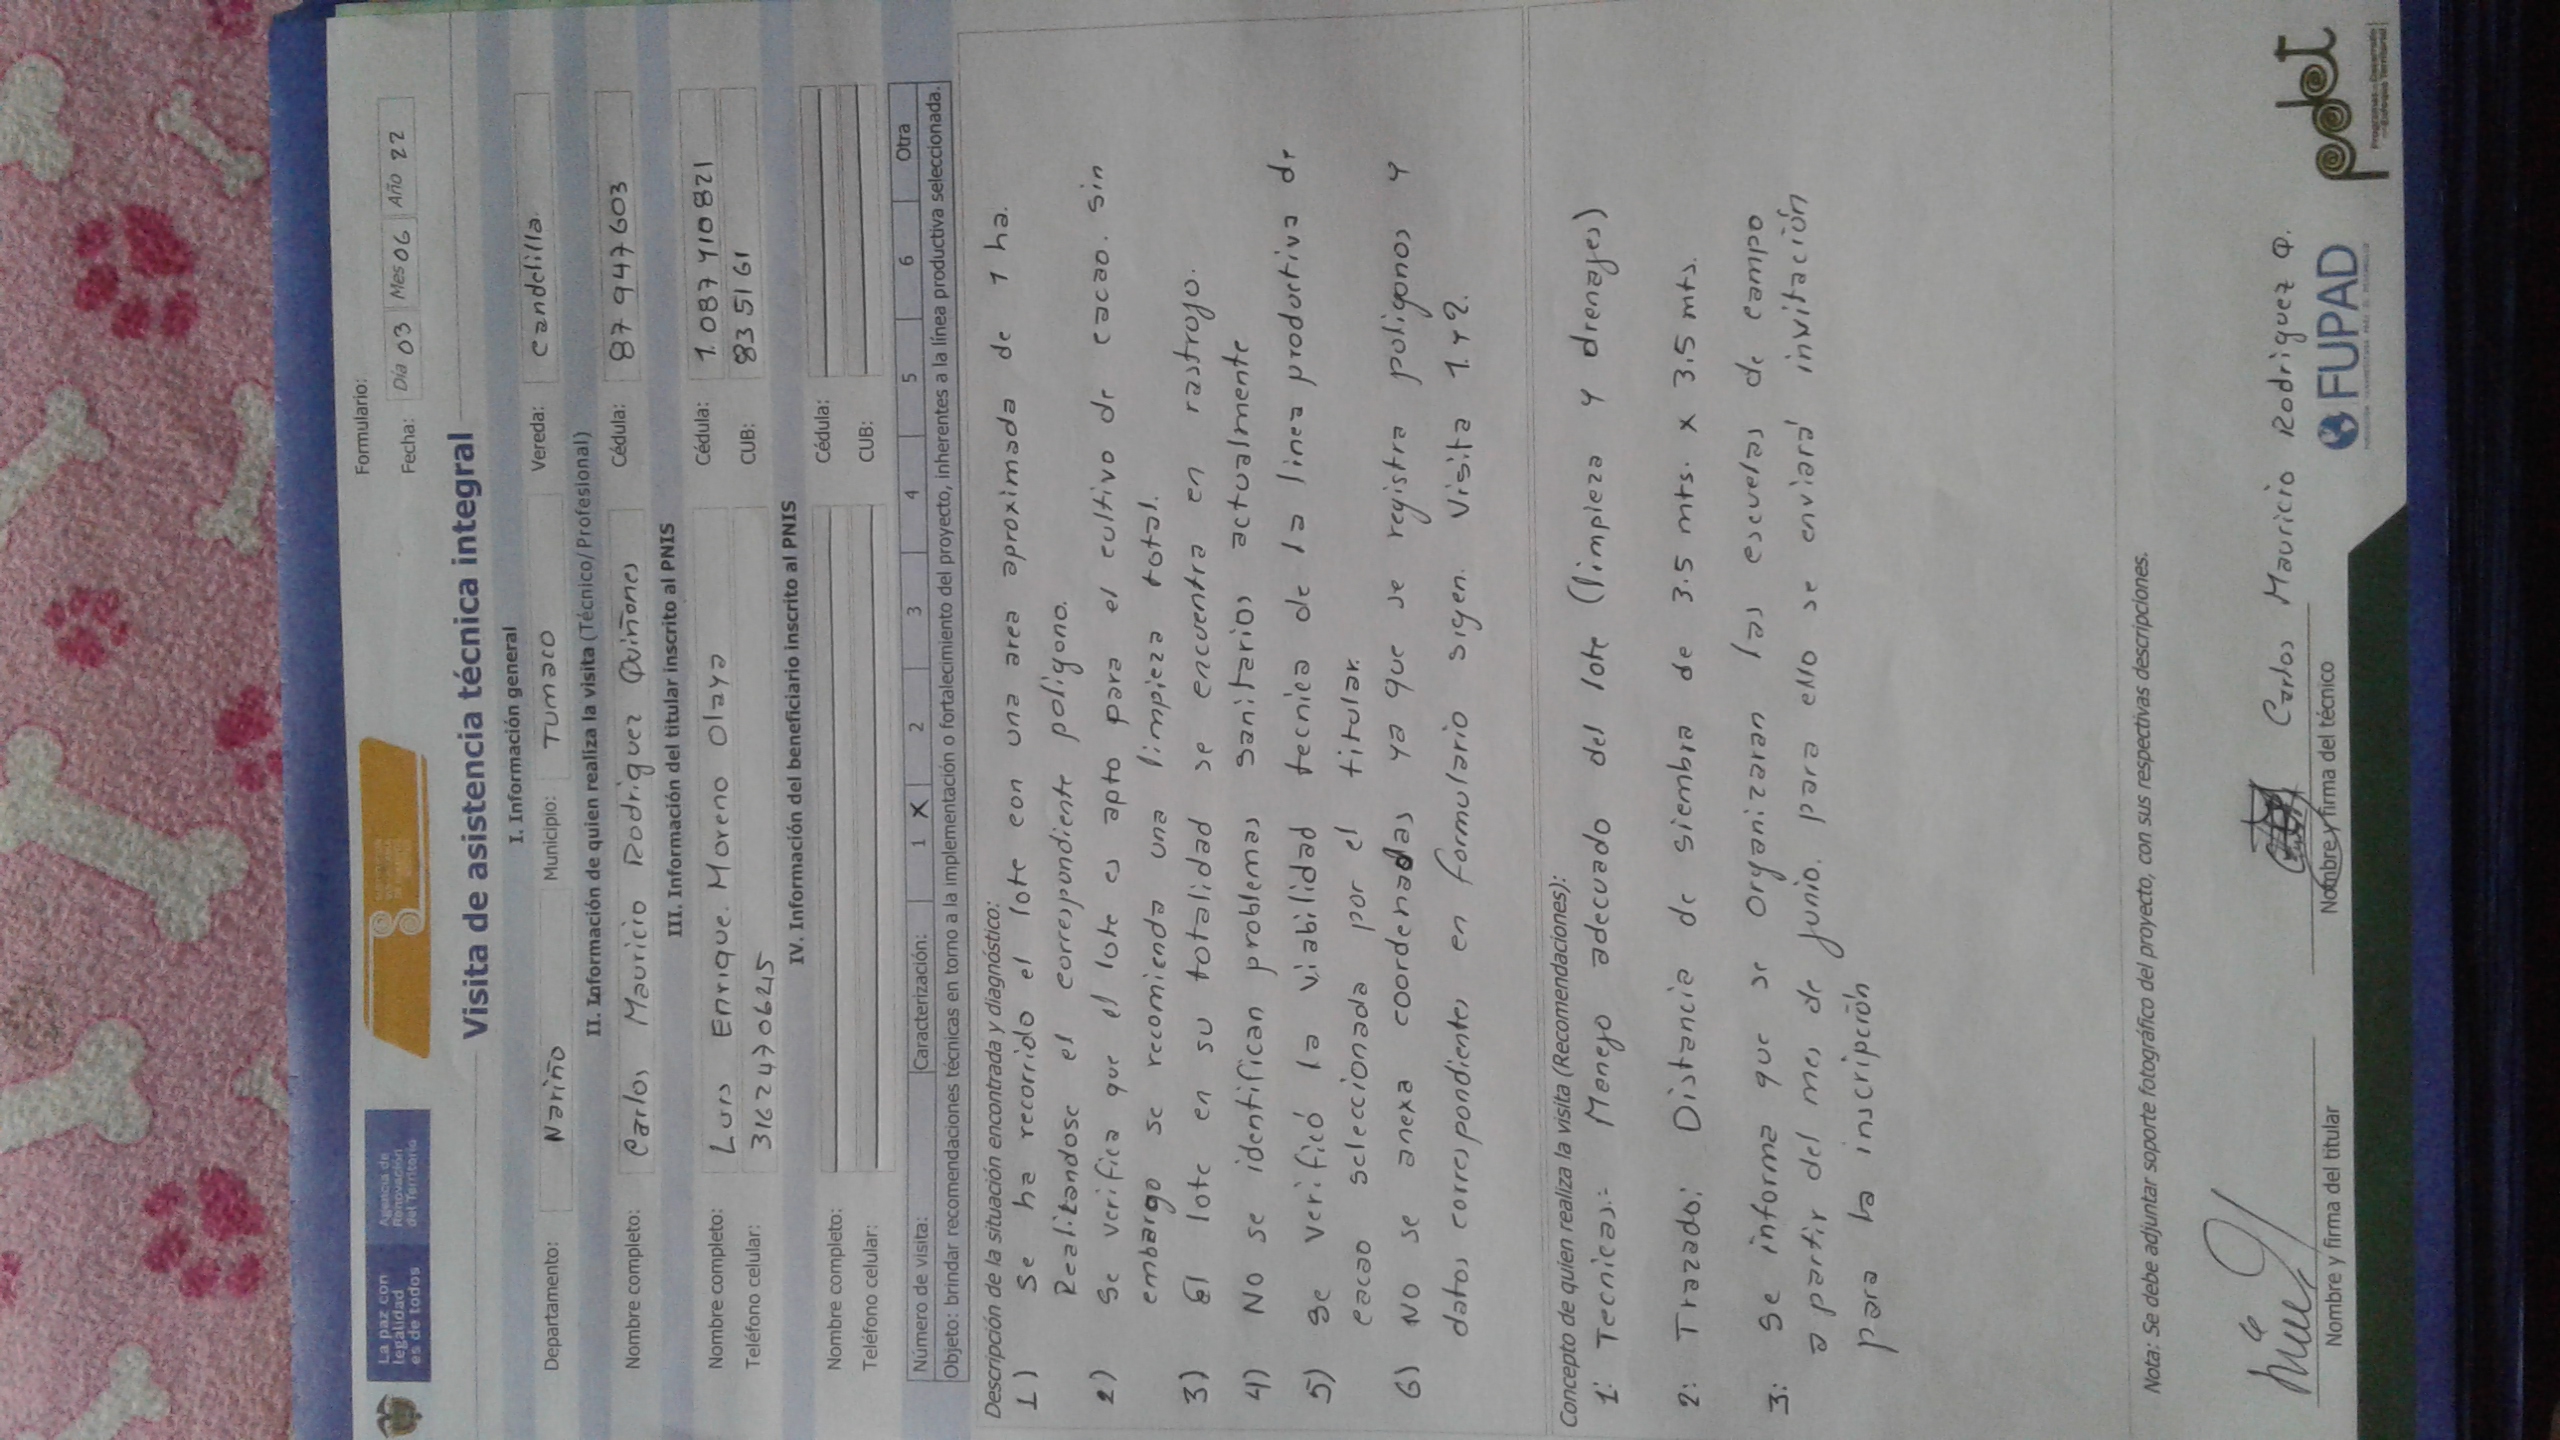 La paz con
legalidad
es de todos
Agencia de
Renovación
del Territorio
Formulario:
Fecha: Día 03 Mes 06 Año 22
Visita de asistencia técnica integral
I. Información general
Departamento: Nariño Municipio: Tumaco Vereda: Candelilla.
II. Información de quien realiza la visita (Técnico/Profesional)
Nombre completo: Carlos Mauricio Rodriguez Quiñones Cédula: 87 947 603
III. Información del titular inscrito al PNIS
Nombre completo: Luis Enrique. Moreno Olaya Cédula: 1.087 410 821
Teléfono celular: 31624706245 CUB: 835161
IV. Información del beneficiario inscrito al PNIS
Nombre completo: Cédula:
Teléfono celular: CUB:
Número de visita: Caracterización: 1 X 2 3 4 5 6 Otra
Objeto: brindar recomendaciones técnicas en torno a la implementación o fortalecimiento del proyecto, inherentes a la línea productiva seleccionada.
Descripción de la situación encontrada y diagnóstico:
1) Se ha recorrido el lote con una area aproximada de 1 ha.
Realitandose el correspondiente poligono.
2) Se verifica que el lote es apto para el cultivo de cacao. sin
embargo se recomienda una limpieza total.
3) El lote en su totalidad se encuentra en rastrojo.
4) No se identifican problemas Sanitarios actualmente
5) Se verificó la viabilidad tecnica de la linea productiva de
cacao seleccionada por el titular.
6) No se anexa coordenadas ya que se registra poligonos y
datos correspondientes en formulario sigen. Visita 1 y 2.
Concepto de quien realiza la visita (Recomendaciones):
1: Tecnicas:- Menejo adecuado del lote (limpieza y drenajes)
2: Trazado: Distancia de siembra de 3.5 mts. x 3.5 mts.
3: Se informa que se organizaran las escuelas de campo
a partir del mes de junio. para ello se enviará invitación
para la inscripción
Nota: Se debe adjuntar soporte fotográfico del proyecto, con sus respectivas descripciones.
Carlos Mauricio Rodriguez Q.
Nombre y firma del titular Nombre y firma del técnico
FUPAD
pdet
Programas de Desarrollo
con Enfoque Territorial